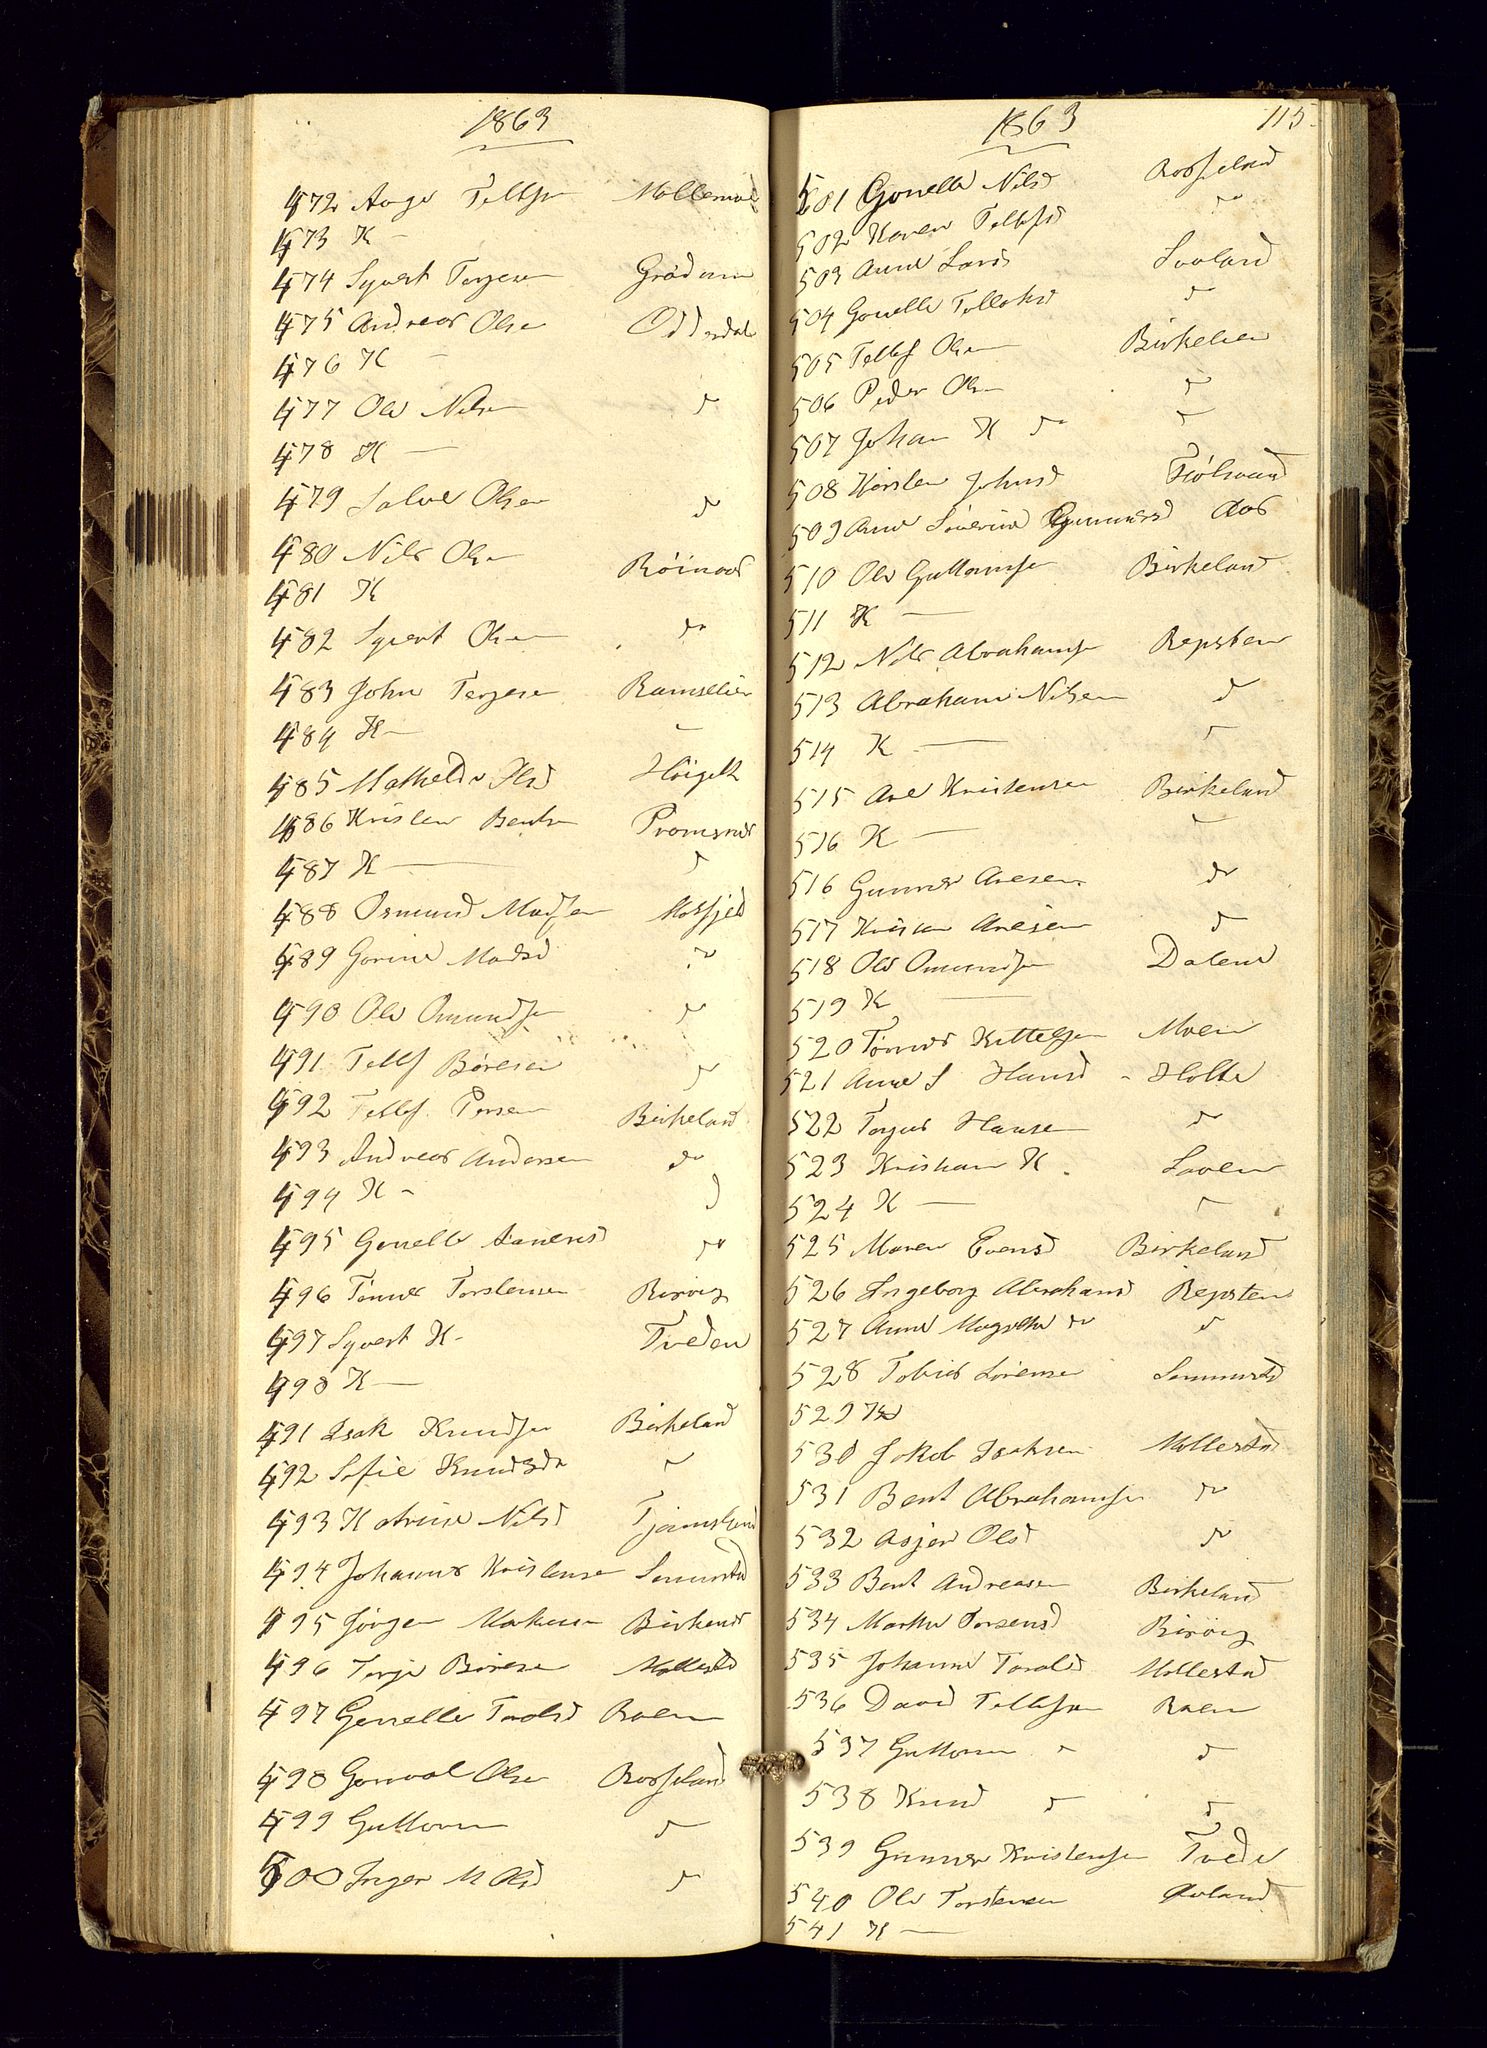 1863
472 Aage Tellfsn Mollemoe
473 K —
474 Syvert Terjesen Grødum
475 Andreas Olsen Oddersdal
476 K —
477 Ole Nilsen d
478 K —
479 Salve Olsen d
480 Nils Olsen Røinaas
481 K
482 Syvert Olsen do
483 John Terjesen Ramselien
484 K —
485 Mathelde Olsd Høigilt
486 Kristen Bentsen Promsnes
487 K — d
488 Osmund Madsen Mosfjeld
489 Gorine Madsd do
490 Ole Omundsen do
491 Tellf Børesen do
492 Tellef Persen Birkeland
493 Andreas Andersen do
494 K —
495 Gonelle Aanensd do
496 Tønnes Torstensen Birøig
497 Syvert K — Tveden
498 K —
491 Isak Knudsen Birkeland
492 Sofie Knudsdr
493 Katrine Nilsd Tjomsland
494 Johannes Kristensen Senumstad
495 Jørgen Markusen Birkenes
496 Terje Børesen Mollestad
497 Gonelle Taralsd Roen
498 Gonval Olsen Rosseland
499 Guttorm d
500 Inger M Olsd d
1863 115
501 Gonelle Nilsd Rosseland
502 Karen Tellefsd
503 Anne Larsd Lovland
504 Gonelle Tellefsd d
505 Tellef Olsen Birkelien
506 Peder Olsen d
507 Johan K do
508 Kirsten Johnsd Fjölvand
509 Anne Severine Gunnersd Aas
510 Ole Guttormsen Birkeland
511 K —
512 Nils Abrahamsen Repsten
513 Abraham Nilsen d
514 K —
515 Ane Kristensen Birkeland
516 K —
516 Gunner Anesen do
517 Kristen Anesen d
518 Ole Omundsen Dalene
519 K —
520 Tønnes Kittelsen Moen
521 Anne S Hansd Holte
522 Terjus Hansen do
523 Kristian K Loven
524 K —
525 Maren Evensd Birkeland
526 Ingeborg Abrahamsd Repsten
527 Anne Margrethe do d
528 Tobias Sørensen Senumstad
529 K
530 Jakob Isaksen Mollestad
531 Bent Abrahamsen do
532 Asjer Olsd do
533 Bent Andreasen Birkeland
534 Marthe Torsensd Birøig
535 Johanne Taralsd Mollestad
536 David Tellefsen Roen
537 Guttorm d
538 Knud d d
539 Gunner Kristensen Tvede
540 Ole Torstensen Aaland
541 K —